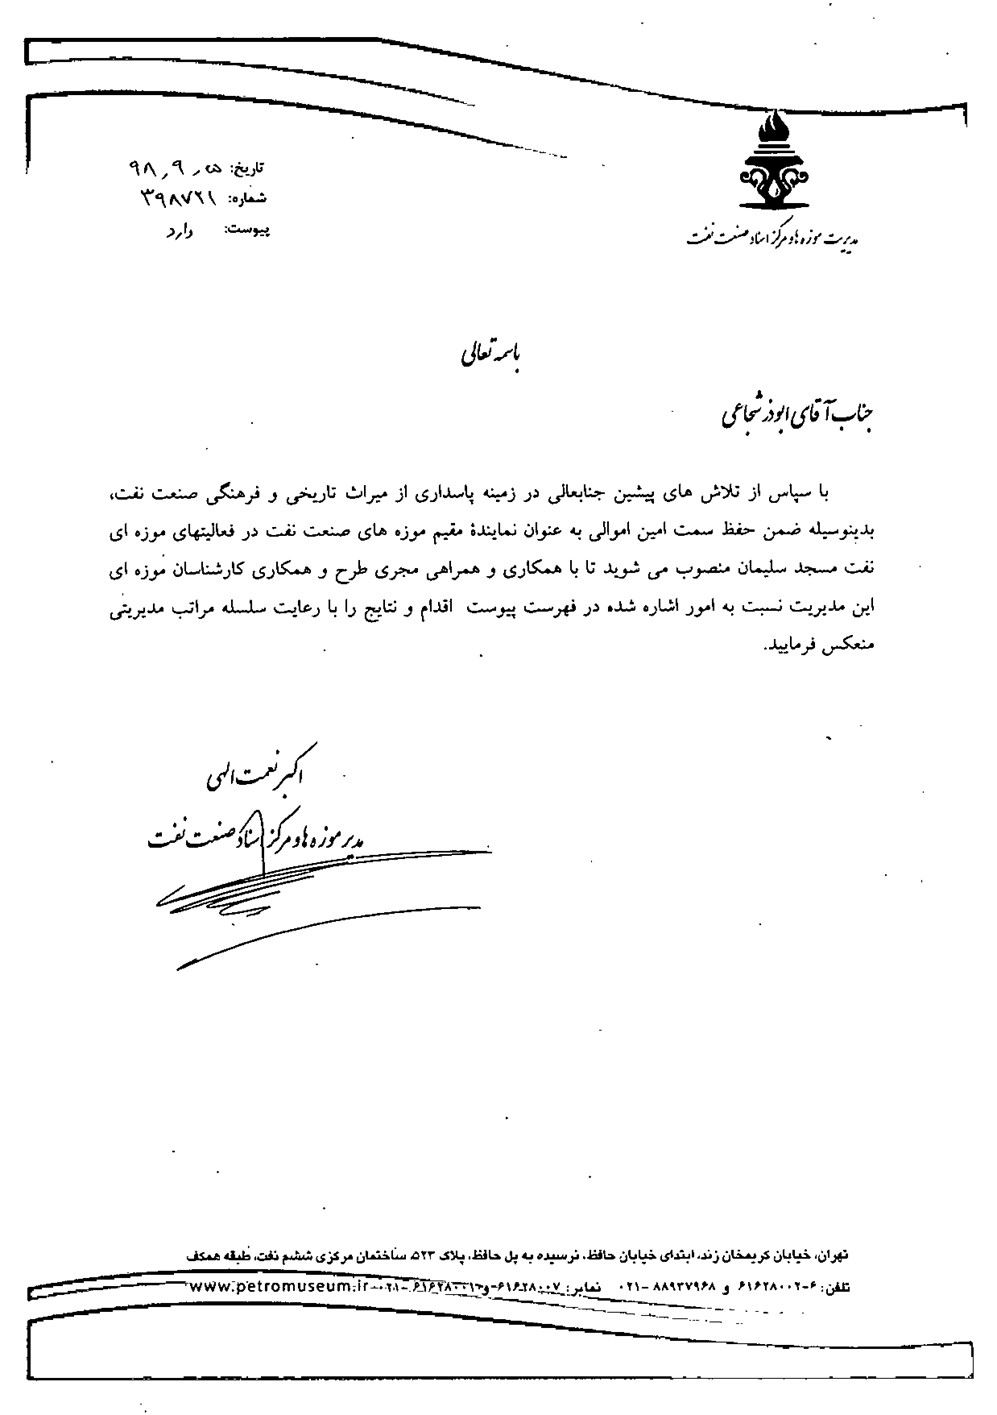 تاریخ: ۹۸٫۹٫۰۵
شماره: ۳۹۸۷۲۱
پیوست: وارد
مدیریت موزه ها و مرکز اسناد صنعت نفت
باسمه تعالی
جناب آقای ابوذر شجاعی
با سپاس از تلاش های پیشین جنابعالی در زمینه پاسداری از میراث تاریخی و فرهنگی صنعت نفت،
بدینوسیله ضمن حفظ سمت امین اموالی به عنوان نمایندهٔ مقیم موزه های صنعت نفت در فعالیتهای موزه ای
نفت مسجد سلیمان منصوب می شوید تا با همکاری و همراهی مجری طرح و همکاری کارشناسان موزه ای
این مدیریت نسبت به امور اشاره شده در فهرست پیوست اقدام و نتایج را با رعایت سلسله مراتب مدیریتی
منعکس فرمایید.
اکبر نعمت الهی
مدیر موزه ها و مرکز اسناد صنعت نفت
تهران، خیابان کریمخان زند، ابتدای خیابان حافظ، نرسیده به پل حافظ، پلاک ۵۲۳، ساختمان مرکزی ششم نفت، طبقه همکف
تلفن: ۶-۶۱۶۲۸۰۰۲ و ۸۸۹۳۷۹۶۸ -۰۲۱ نمابر: ۶۱۶۲۸۰۰۷-و ۶۱۶۲۸۰۰۱-۰۲۱ www.petromuseum.ir